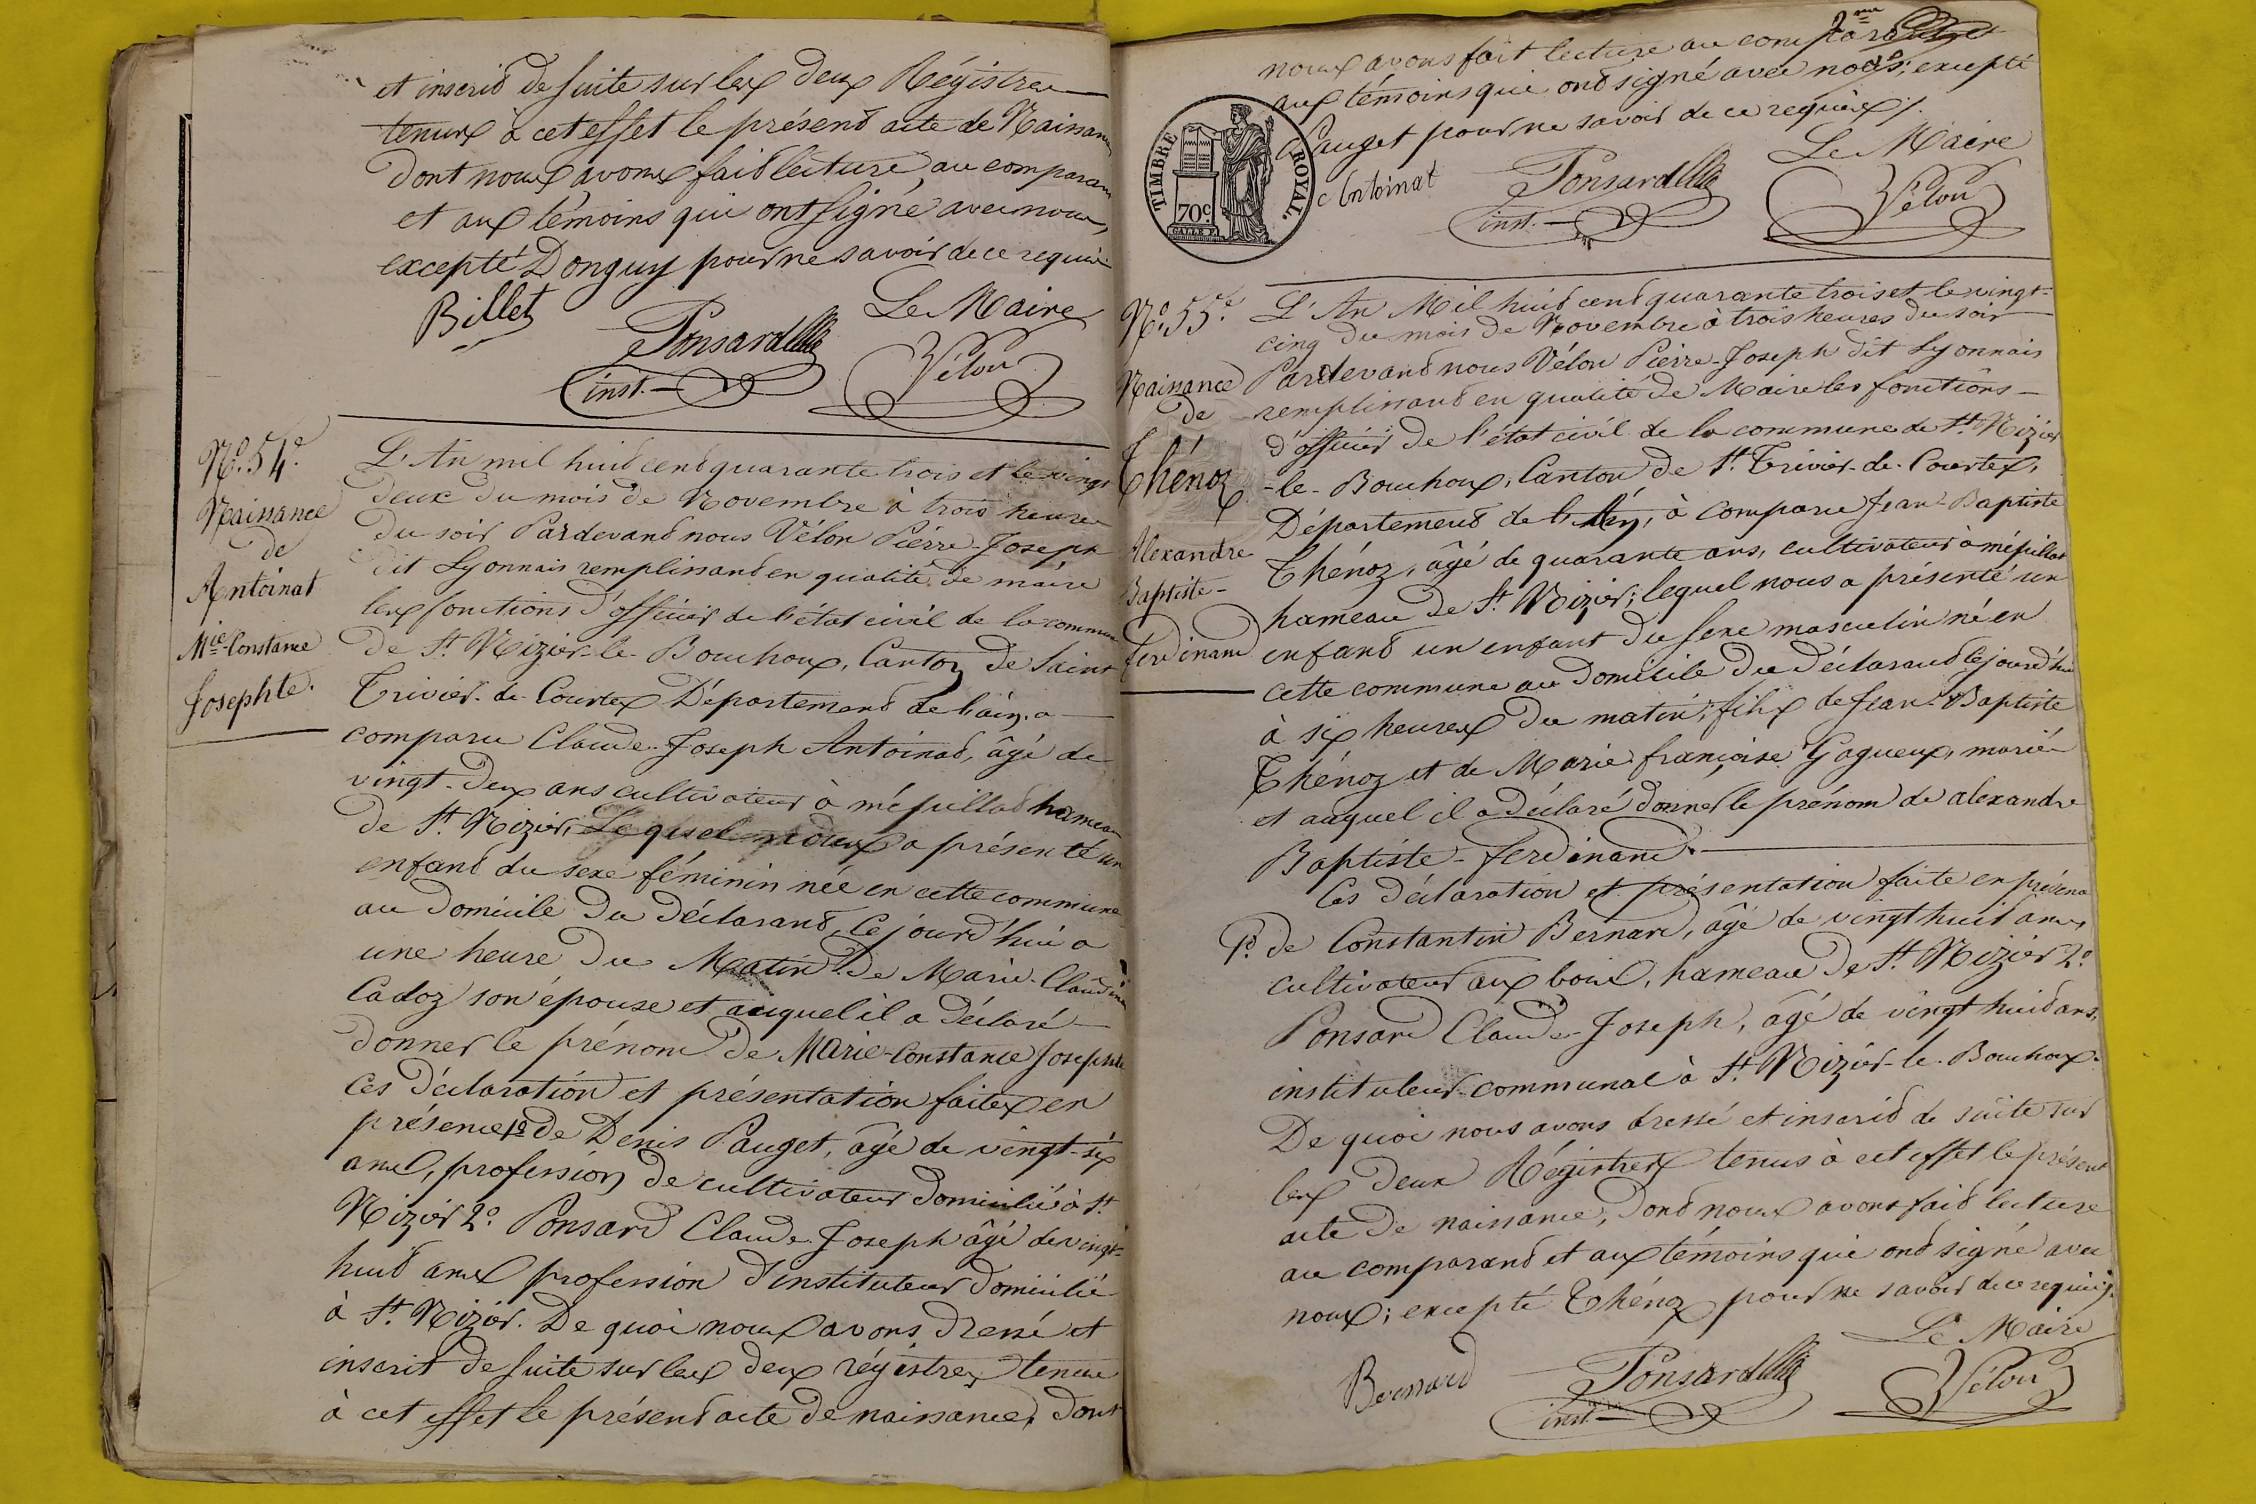 et inscrit de suite sur les deux Régistres
tenus à cet effet le présent acte de Naissance
dont nous avons fait lecture au comparant
et aux témoins qui ont signé avec nous,
excepté Donguy pour ne savoir de ce requis
Billet
Ponsard
inst.
Le Maire
Vélon
N.º 54.e
Naissance
de
Antoinat
Mie Constance
Josephte.
L'An mil huit cent quarante trois et le vingt
deux du mois de Novembre à trois heures
du soir Pardevant nous Vélon Pierre-Joseph
dit Lyonnais remplissant en qualité de maire
les fonctions d'officier de l'état civil de la commune
de St. Nizier-le-Bouchoux, Canton de Saint
Trivier-de-Courtes Département de l'ain, a
comparu Claude-Joseph Antoinat, âgé de
vingt-deux ans cultivateur à mépillat hameau
de St. Nizier; Lequel nous a présenté un
enfant du sexe féminin née en cette commune
au domicile du Déclarant, Cejourd'hui a
une heure du Matin de Marie-Claudine
Cadoz son épouse et auquel il a déclaré
donner le prénom de Marie-Constance Josephte
Ces déclaration et présentation faites en
présence 1º de Denis Pauget, âgé de vingt-six
ans, profession de cultivateur domicilié à St.
Nizier 2º Ponsard Claude-Joseph âgé de vingt-
huit ans profession d'instituteur domicilié
à St. Nizier. De quoi nous avons dressé et
inscrit de suite sur les deux régistres tenus
à cet effet le présent acte de naissance, dont
2me
nous avons fait lecture au comparant et
aux témoins qui ont signé avec nous; excepté
Pauget pour ne savoir de ce requis./.
TIMBRE ROYAL.
70c
Antoinat
Ponsard
inst.
Le Maire
Vélon
N.º 55.e
Naissance
de
Thénoz
Alexandre
Baptiste-
ferdinand
L'An Mil huit cent quarante trois et le vingt-
cinq du mois de Novembre à trois heures du soir
Pardevant nous Vélon Pierre-Joseph dit Lyonnais
remplissant en qualité de Maire les fonctions
d'officier de l'état civil de la commune de St. Nizier
-le-Bouchoux, Canton de St. Trivier-de-Courtes,
Département de l'Ain, à comparu Jean-Baptiste
Thénoz, âgé de quarante ans, cultivateur à mépillat
hameau de St. Nizier; lequel nous a présenté un
enfant un enfant du sexe masculin né en
cette commune au domicile du déclarant Cejourd'hui
à six heures du matin; fils de Jean-Baptiste
Thénoz et de Marie françoise Gagueux, mariés
et auquel il a déclaré donner le prénom de alexandre
Baptiste-ferdinand.
Ces déclaration et présentation faite en présence
1º de Constantin Bernard, âgé de vingt huit ans,
cultivateur aux bois, hameau de St. Nizier 2º
Ponsard Claude-Joseph, âgé de vingt huit ans,
instituteur communal à St. Nizier-le-Bouchoux.
De quoi nous avons dressé et inscrit de suite sur
les deux Régistres tenus à cet effet le présent
acte de naissance, dont nous avons fait lecture
au comparant et aux témoins qui ont signé avec
nous; excepté Thénoz pour ne savoir de ce requis./.
Bernard
Ponsard
inst.
Le Maire
Vélon